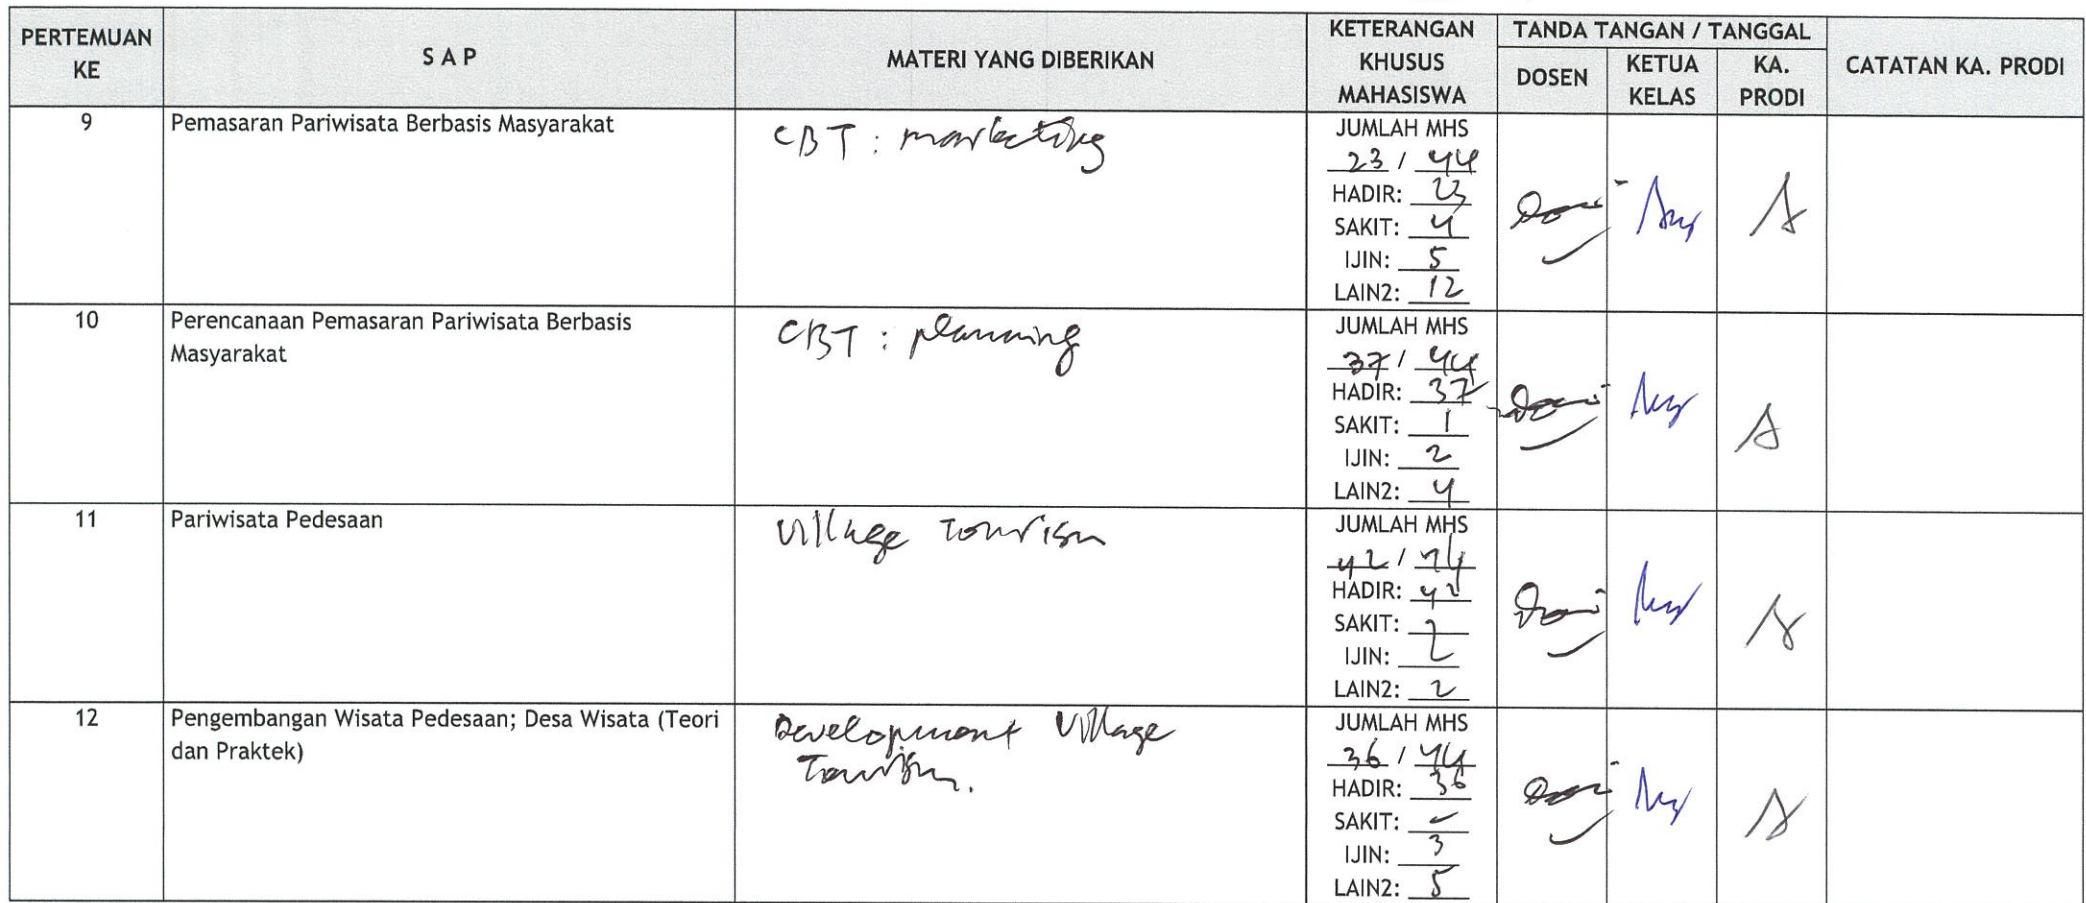 PERTEMUAN KE
S A P
MATERI YANG DIBERIKAN
KETERANGAN KHUSUS MAHASISWA
TANDA TANGAN / TANGGAL
DOSEN
KETUA KELAS
KA. PRODI
CATATAN KA. PRODI
9
Pemasaran Pariwisata Berbasis Masyarakat
CBT : marketing
JUMLAH MHS
23 / 44
HADIR: 23
SAKIT: 4
IJIN: 5
LAIN2: 12
10
Perencanaan Pemasaran Pariwisata Berbasis
Masyarakat
CBT : planning
JUMLAH MHS
37 / 44
HADIR: 37
SAKIT: 1
IJIN: 2
LAIN2: 4
11
Pariwisata Pedesaan
Village Tourism
JUMLAH MHS
42 /
HADIR: 42
SAKIT:
IJIN:
LAIN2: 2
12
Pengembangan Wisata Pedesaan; Desa Wisata (Teori
dan Praktek)
Development Village
Tourism.
JUMLAH MHS
36 / 44
HADIR: 36
SAKIT:
IJIN: 3
LAIN2: 5